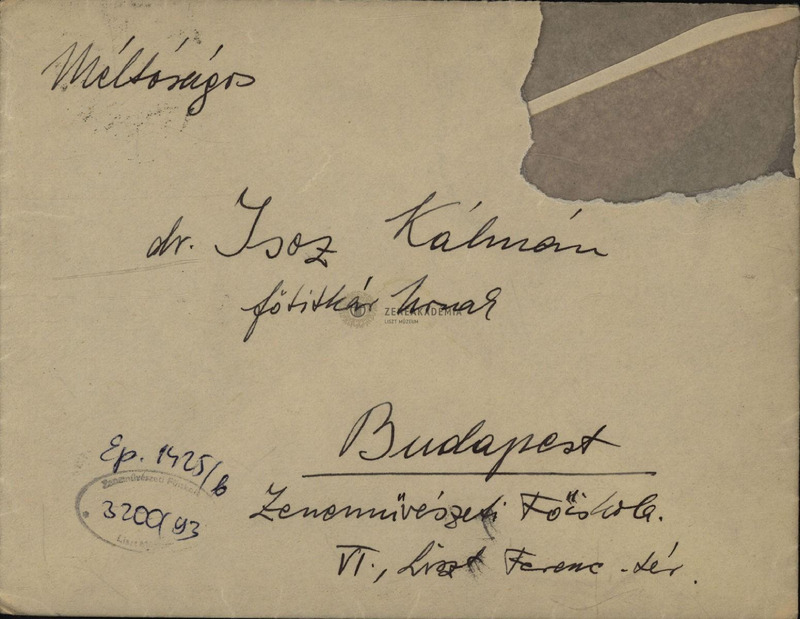 Méltóságos
dr. Isoz Kálmán
főtitkár Urnak
ZENEAKADÉMIA
LISZT MÚZEUM
Budapest
Ep. 1425/b
Zeneművészeti
3200/93
Zeneművészeti Főiskola.
VI., Liszt Ferenc-tér.